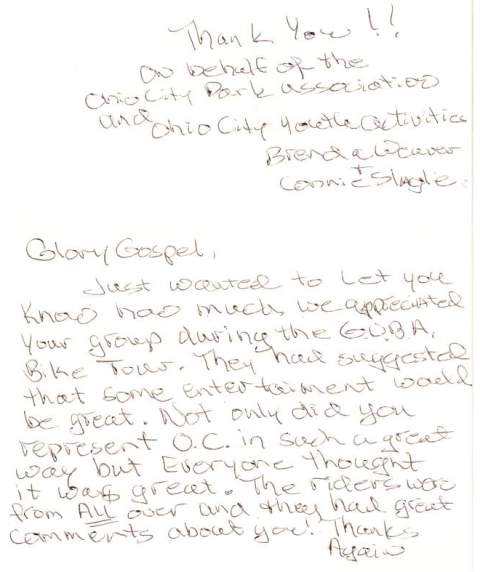 Thank You!!
on behalf of the
Ohio City Park association
and Ohio City Youth activities
Brenda Weaver
+
Connie Slagle.
Glory Gospel,
Just wanted to let you
know how much we appreciated
your group during the G.O.B.A.
Bike Tour. They had suggested
that some entertaiment would
be great. Not only did you
represent O.C. in such a great
way but Everyone thought
it was great. The riders were
from ALL over and they had great
comments about you! Thanks
Again